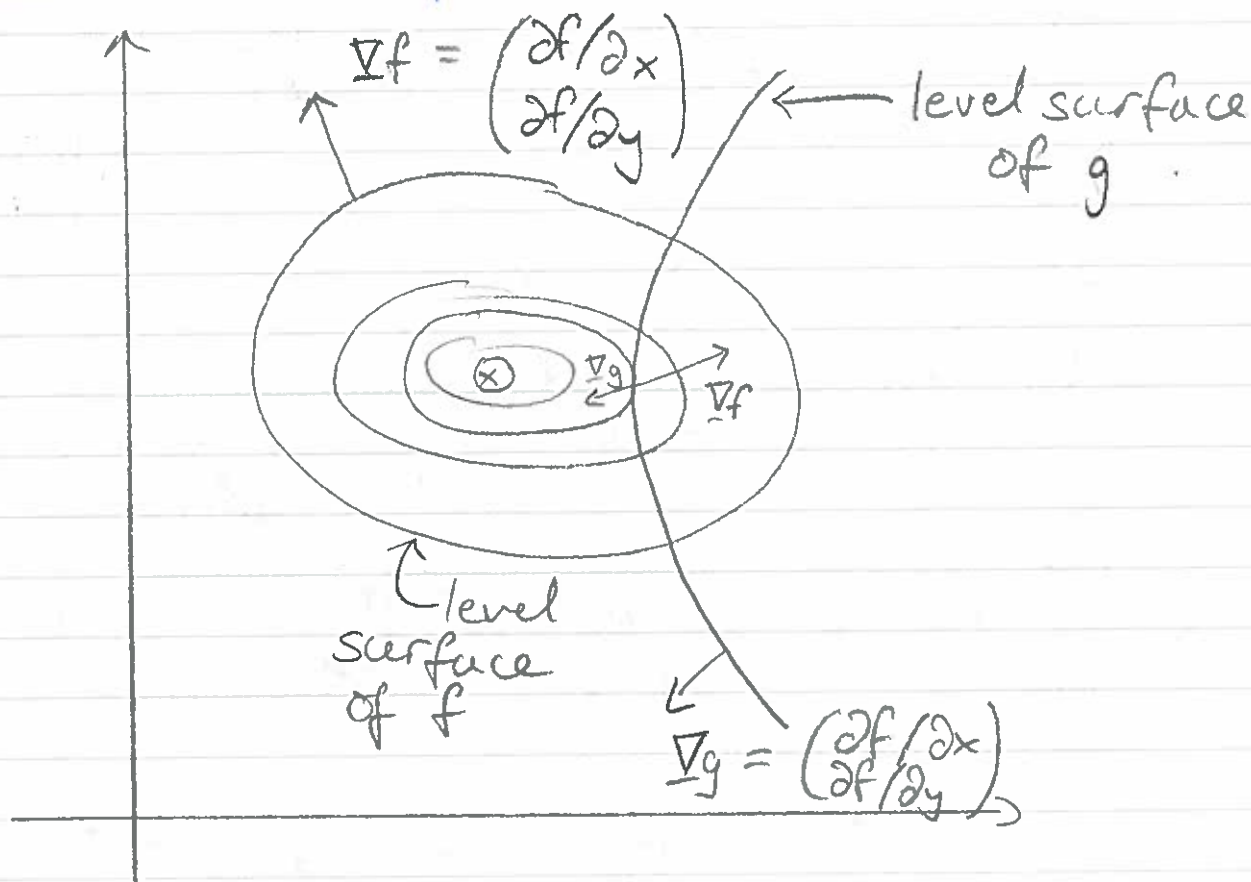 ∇f = (∂f/∂x
∂f/∂y)
level surface
of g
x
∇g
∇f
level
surface
of f
∇g = (∂f/∂x
∂f/∂y)